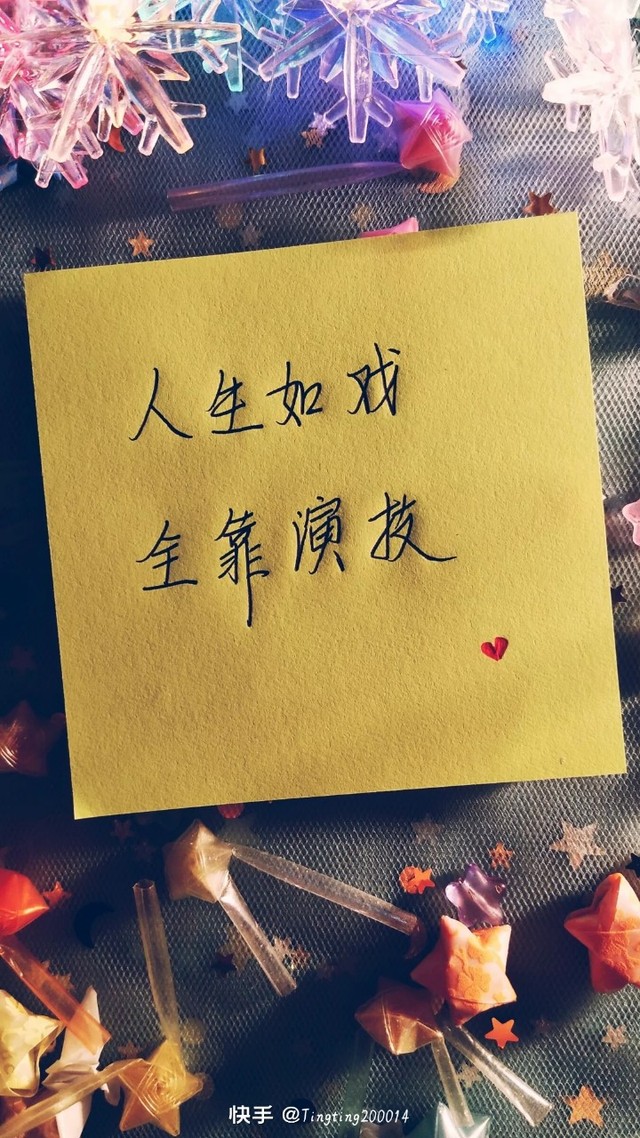 人生如戏
全靠演技
快手 @Tingting200014